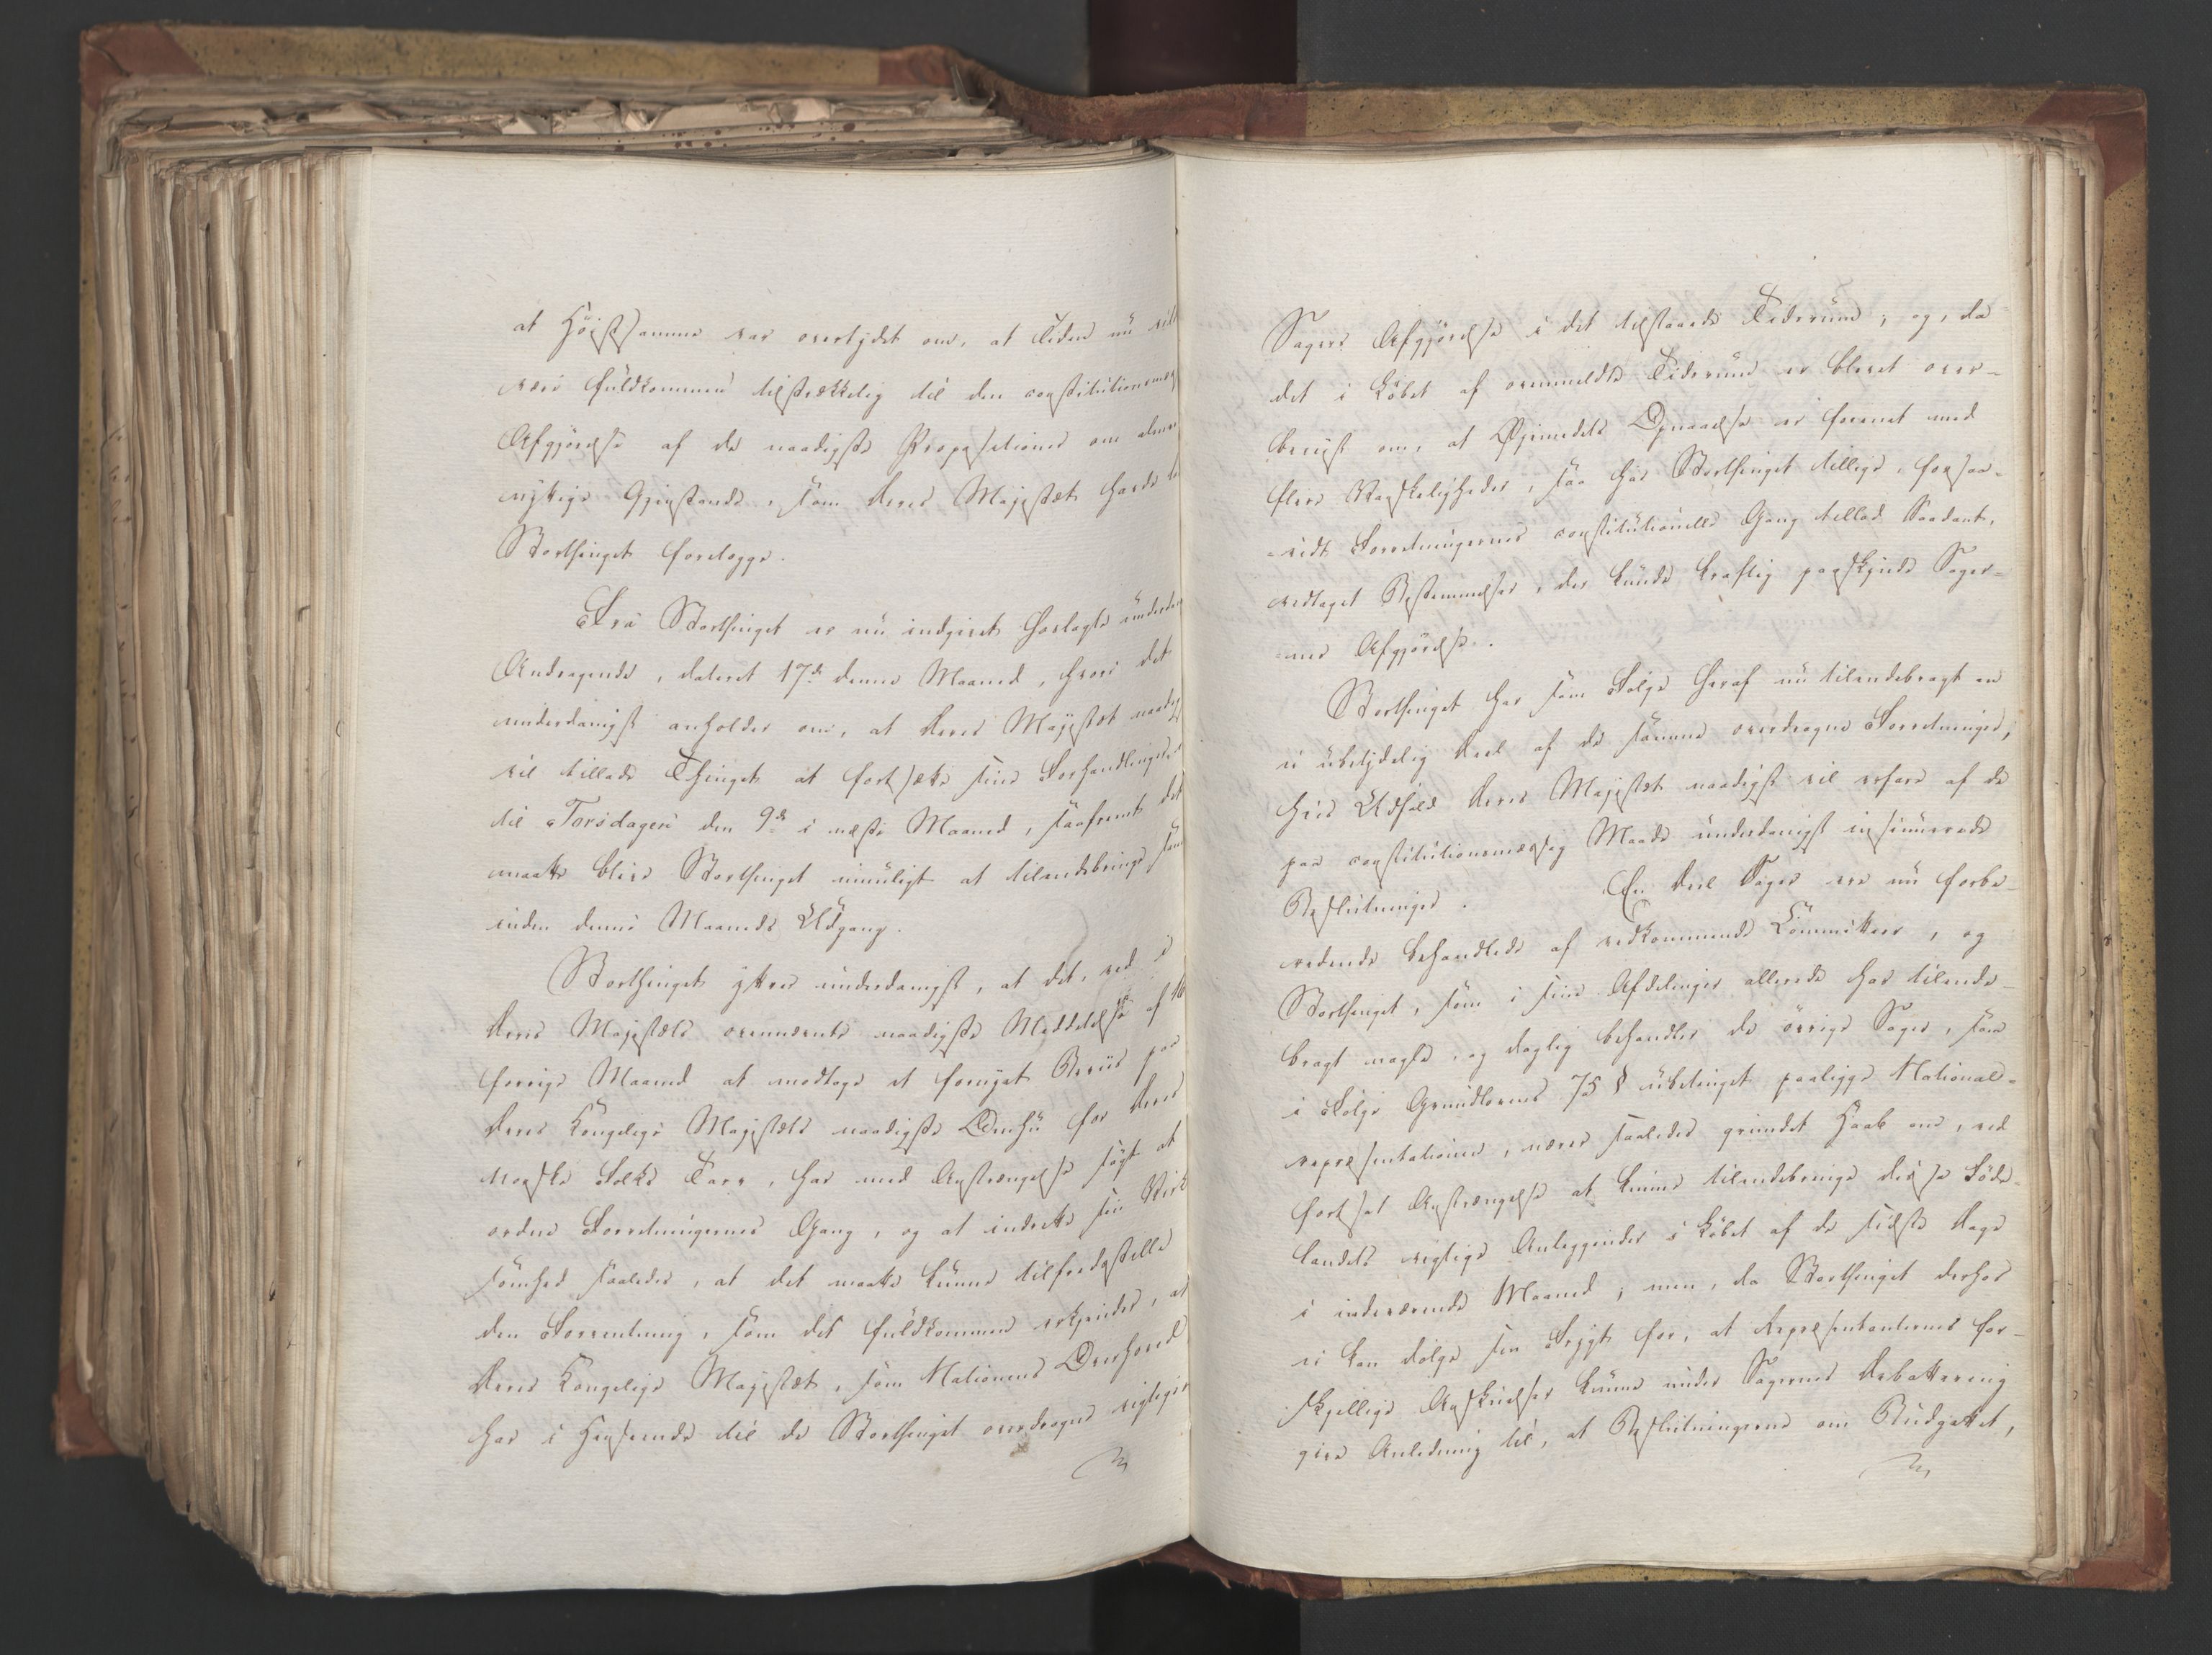 at Høistsamme var overtydet om, at Tiden nu vil
være fuldkommen tilstrækkelig til den constitutionsmæs
Afgjørelse af de naadigste Propositioner om almeen
nyttige Gjenstande, som Deres Majestæt havde la
Storthinget forelægge.
Fra Storthinget er nu indgivet forlagte underdan
Andragende, dateret 17de denne Maaned, hvori det
underdanigst anholder om, at Deres Majestæt naadig
vil tillade Thinget at fortsætte sine Forhandlinger
til Torsdagen den 9de i næste Maaned, saafremt det
maatte blive Storthinget umuligt at tilendebringe sam
inden denne Maaneds Udgang.
Storthinget yttrer underdanigst, at det, ved i
Deres Majestæts ovennævnte naadigste Meddelelse af 16
forrige Maaned at modtage et fornyet Beviis paa
Deres Kongelige Majestæts naadigste Omhu for Deres
norske Folks Tarv, har med Anstrengelse søgt at
ordne Forretningernes Gang, og at indrette sin Virk
somhed saaledes, at det maatte kunne tilfredsstille
den Forventning, som det fuldkommen erkjender, at
Deres Kongelige Majestæt, som Nationens Overhoved
har i Henseende til de Storthinget overdragne vigtige
Sagers Afgjørelse i det tilstaaede Tidsrum; og, da
det i Løbet af ovenmeldte Tidsrum er blevet over-
beviist om, at Øjemedets Opnaaelse er forenet med
flere Vanskeligheder, saa har Storthinget tillige, forsaa-
-vidt Forretningernes constitutionelle Gang tillod Saadant,
vedtaget Bestemmelser, der kunde kraftig paaskynde Sager-
-nes Afgjørelse.
Storthinget har som Følge heraf nu tilendebragt en
ei ubetydelig Deel af de samme overdragne Forretninger,
hvis Udfald Deres Majestæt naadigst vil erfare af de
paa constitutionsmæssig Maade underdanigst insinuerede
Beslutninger. En Deel Sager ere nu forbe-
redende behandlede af vedkommende Committeer, og
Storthinget, som i sine Afdelinger allerede har tilende-
bragt nogle, og daglig behandler de øvrige Sager, som
i Følge Grundlovens 75 § ubetinget paaligge National-
repræsentationen, nærer saaledes grundet Haab om, ved
fortsat Anstrængelse at kunne tilendebringe disse Føde-
landets vigtige Anliggender i Løbet af de sidste Dage
i indeværende Maaned; men, da Storthinget derhos
ei kan dølge sin Frygt for, at Repræsentanternes for-
skjellige Anskuelser kunne under Sagernes Debattering
give Anledning til, at Beslutningerne om Budgettet,